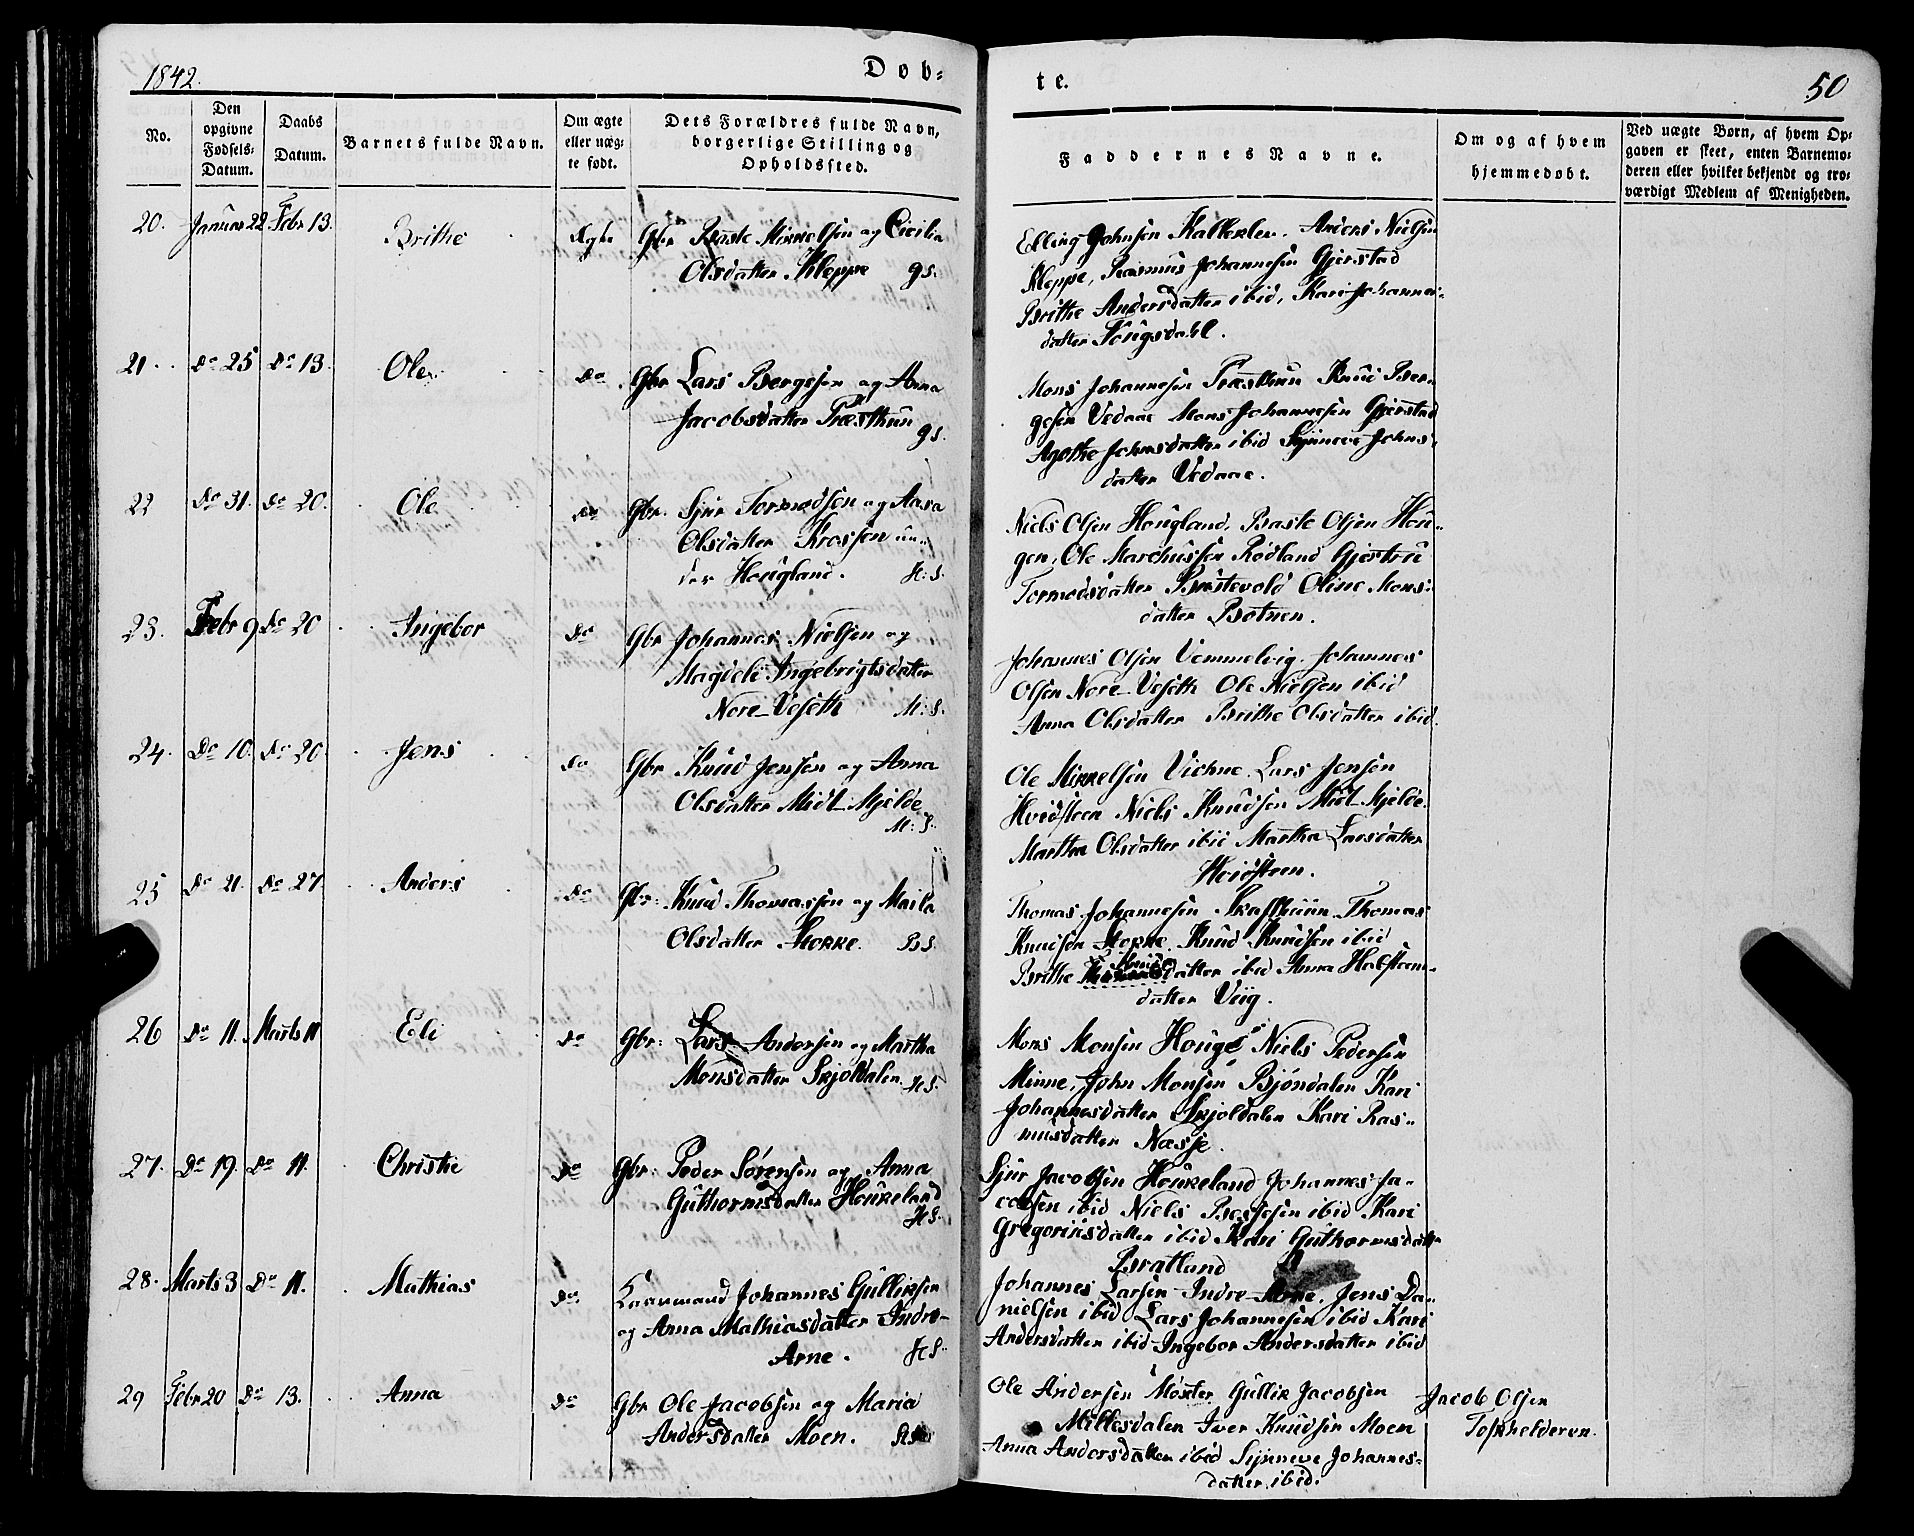 1842.
Døb-
te.
50
No.
Den opgivne Fødsels-Datum.
Daabs Datum.
Barnets fulde Navn.
Om ægte eller uægte født.
Dets Forældres fulde Navn, borgerlige Stilling og Opholdssted.
Faddernes Navne.
Om og af hvem hjemmedøbt.
Ved uægte Børn, af hvem Op-
gaven er skeet, enten Barnemo-
deren eller hvilket bekjendt og tro-
værdigt Medlem af Menigheden.
20. Januar 22 Febr 13. Brithe Ægte Gbr Baste Mikkelsen og Cicilia
Olsdatter Kleppe gs.
Elling Johnsen Kalleklev. Anders Nielsen
Kleppe, Rasmus Johannesen Gjerstad
Brithe Andersdatter ibid, Kari Johannes-
datter Tougsdahl.
21. Do 25 Do 13. Ole Do Gbr Lars Bergesen og Anna
Jacobsdatter Præsthun gs.
Mons Johannesen Præsthun Knud Ber-
gesen Vedaae Mons Johannesen Gjerstad
Agathe Johnsdatter ibid Synneve Johns-
datter Vedaae.
22 Do 31. Do 20. Ole Do Gbr. Sjur Tormodsen og Anna
Olsdatter Krossen un-
der Hougland. H: S.
Niels Olsen Hougland, Baste Olsen Hou-
gen, Ole Marchussen Rødland Gjertru
Tormodsdatter Børstevold Oline Mons-
datter Botnen.
23. Febr 9 Do 20 Ingebor Do Gbr Johannes Nielsen og
Magdeli Ingebrigtsdatter
Nore-Veseth M: S.
Johannes Olsen Vemmelvig. Johannes
Olsen Nore-Veseth Ole Nielsen ibid
Anna Olsdatter Brithe Olsdatter ibid.
24. Do 10. Do 20. Jens Do Gbr Knud Jensen og Anna
Olsdatter Midt-Mjelde
M: S.
Ole Mikkelsen Vichne. Lars Jensen
Hvidsteen Niels Knudsen Midt-Mjelde.
Martha Olsdatter ibid Martha Larsdatter
Hvidsteen.
25 Do 21. Do 27. Anders Do Gbr: Knud Thomassen og Marla
Olsdatter Hopke. BS.
Thomas Johannesen Skafthuun. Thomas
Knudsen Storke. Knud Knudsen ibid
Brithe Knudsdatter ibid Anna Halsteen-
datter Viig.
26 Do 11. Marts 11 Eli Do Gbr: Lars Andersen og Martha
Monsdatter Skjoldalen HS.
Mons Monsen Houge Niels Pedersen
Minne, John Monsen Bjøndalen Kari
Johannesdatter Skjoldalen Kari Ras-
musdatter Næsse.
27. Do 19. Do 11. Christie Do Gbr: Peder Sørensen og Anna
Guthormsdatter Houkeland
HS.
Sjur Jacobsen Houkeland Johannes Ja-
cobsen ibid Niels Bessesen ibid Kari
Gregoriusdatter ibid Kari Guthormsdatt
Bratlund
28. Marts 3 Do 11. Mathias Do. Kaarmand Johannes Gulliksen
og Anna Mathiasdatter Indre-
Arne. HS.
Johannes Larsen Indre-Arne. Jens Da-
nielsen ibid Lars Johannesen ibid Kari
Andersdatter ibid Ingebor Andersdatter ibid
29 Febr 20 Do 13. Anna Do Gbr Ole Jacobsen og Maria
Andersdatter Moen.
Ole Andersen Møster Gullik Jacobsen
Mittesdalen Iver Knudsen Moen
Anna Andersdatter ibid Synneve Johannes-
datter ibid.
Jacob Olsen
Toskhelderen.